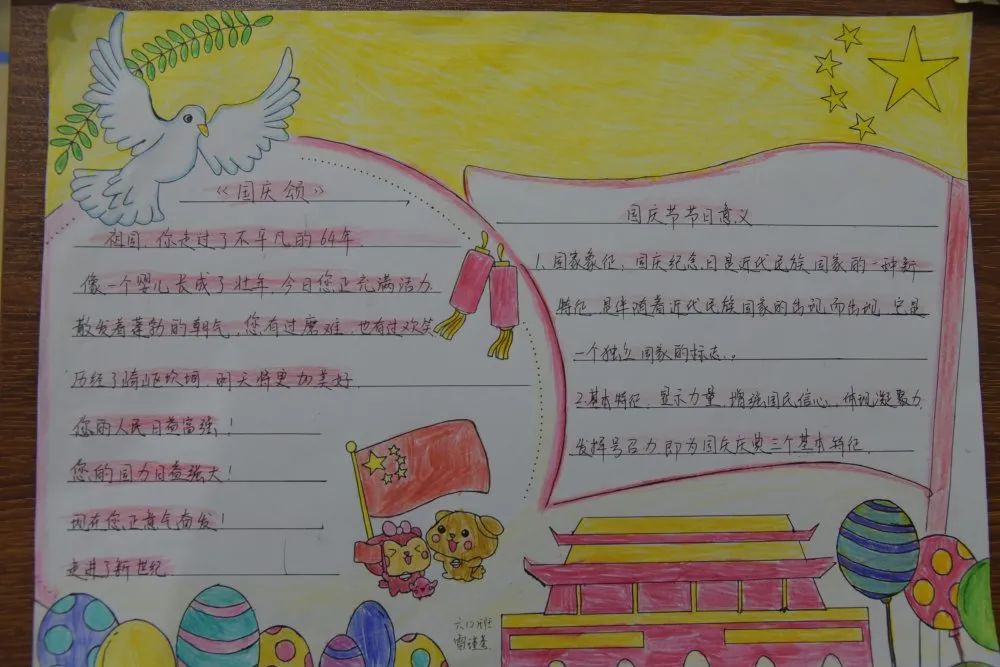 《国庆颂》
祖国，你走过了不平凡的64年，
像一个婴儿长成了壮年，今日您正充满活力
散发着蓬勃的朝气，您有过磨难，也有过欢笑
历经了崎岖坎坷，明天将更加美好，
您的人民日益富强！
您的国力日益强大！
现在您正意气奋发！
走进了新世纪
国庆节节日意义
1、国家象征，国庆纪念日是近代民族国家的一种新
特征，是伴随着近代民族国家的出现而出现，它是
一个独立国家的标志。。
2.基本特征，显示力量，增强国民信心，体现凝聚力，
发挥号召力，即为国庆庆典三个基本特征，